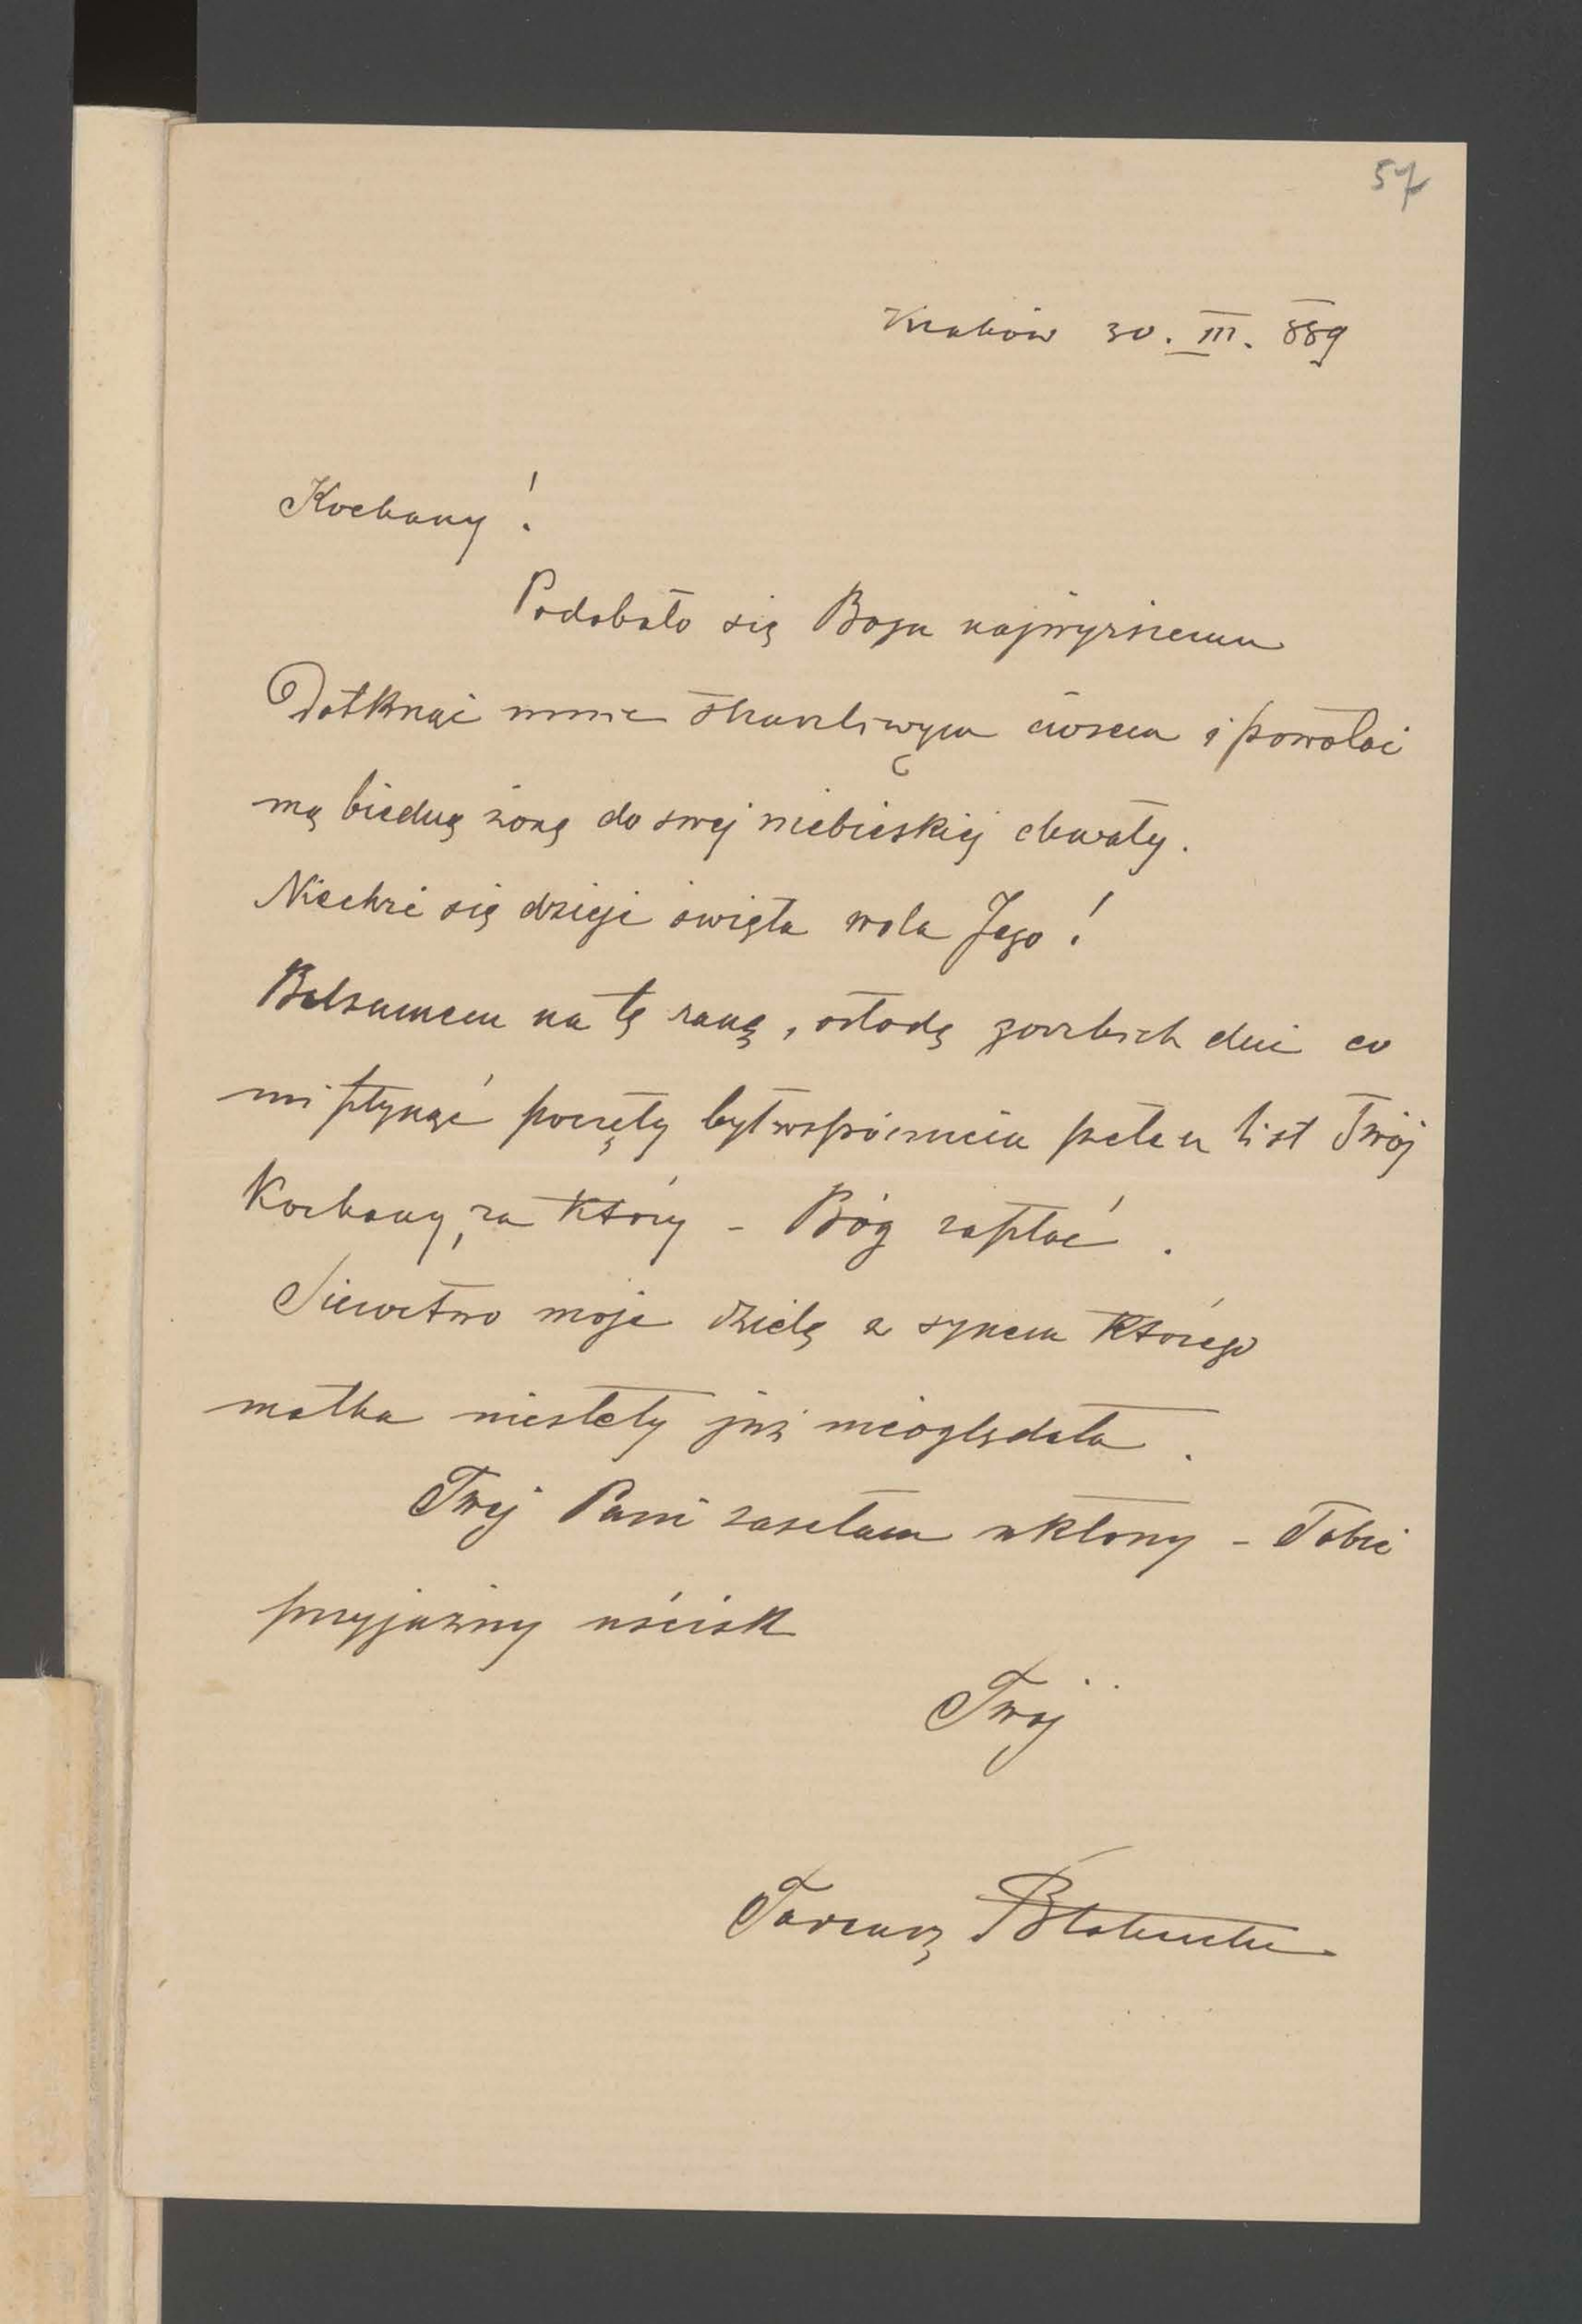 57
Kraków 30. III. 889
Kochany!
Podobało się Bogu najwyższemu
Dotknąć mnie straszliwym ciosem i powołać
mą biedną żonę do swej niebieskiej chwały.
Niechże się dzieje święta wola Jego!
Balsamem na tę ranę, osłodą gorzkich dni co
mi płynąć poczęły był współczucia pełen list Twój
Kochany, za który - Bóg zapłać.
Sieroctwo moje dzielę z synem którego
matka niestety już nieoglądała.
Twej Pani zasełam ukłony - Tobie
przyjaźny uścisk
Twój